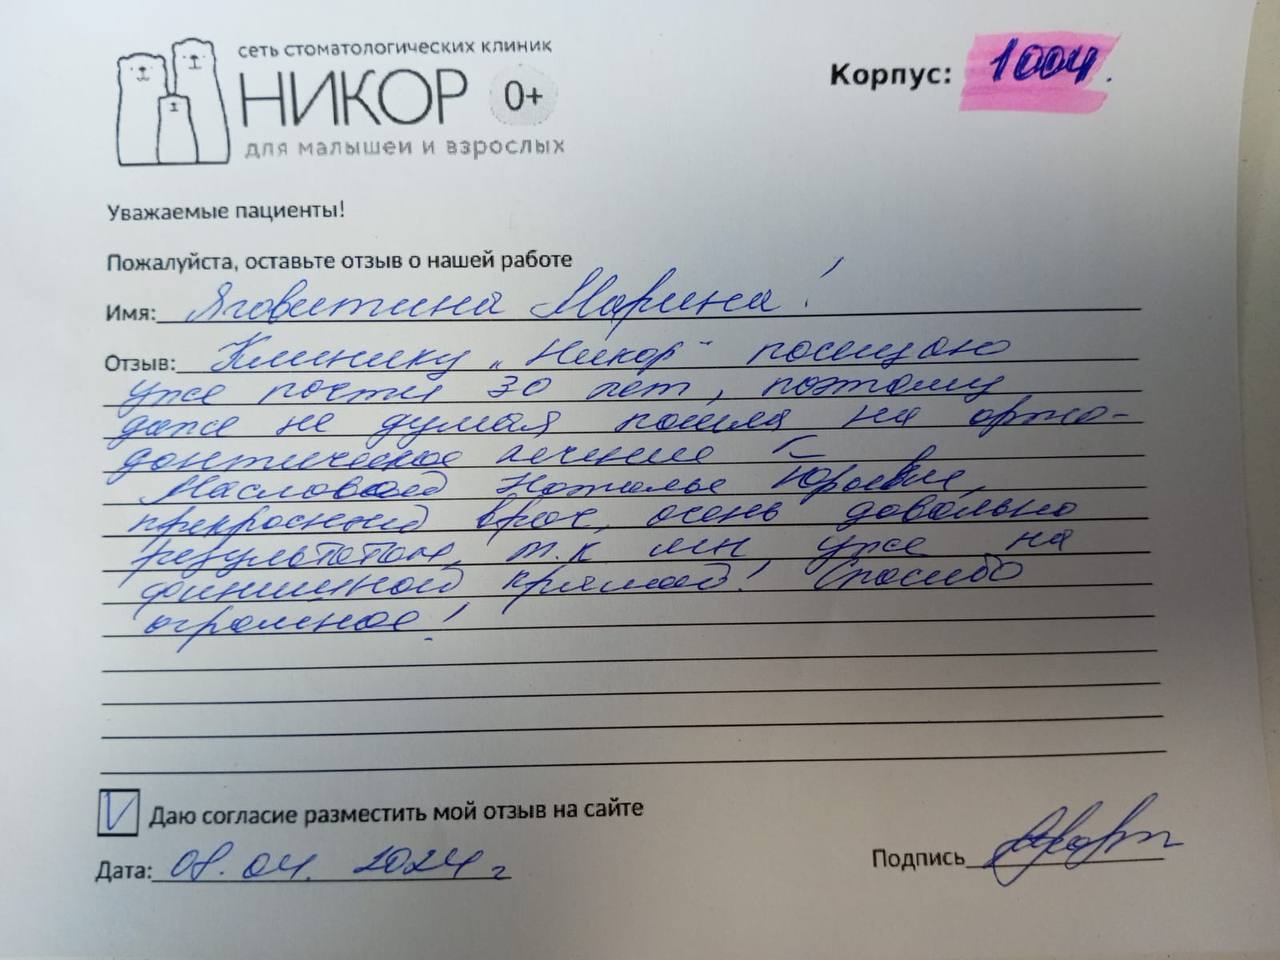 сеть стоматологических клиник
НИКОР 0+
для малышей и взрослых
Корпус: 1004.
Уважаемые пациенты!
Пожалуйста, оставьте отзыв о нашей работе
Имя: Яговитина Марина!
Отзыв: Клинику „Никор" посещаю
уже почти 30 лет, поэтому
даже не думая пошла на орто-
донтическое лечение к
Масловой Наталье Юрьевне,
прекрасный врач, очень довольна
результатом, т.к мы уже на
финишной прямой! Спасибо
огромное!
Даю согласие разместить мой отзыв на сайте
Дата: 08.04.2024г
Подпись